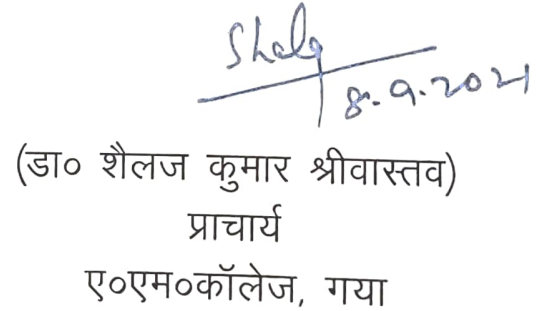 8.9.2021
(डा० शैलज कुमार श्रीवास्तव)
प्राचार्य
ए०एम०कॉलेज, गया